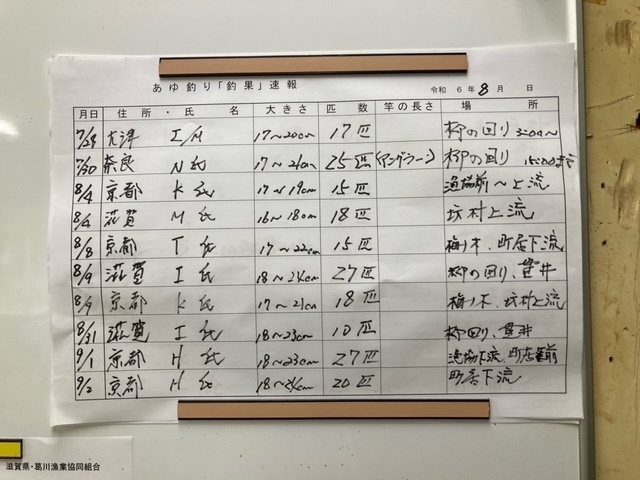 あゆ釣り「釣果」速報 令和 6年 8月 日
月日 住所・氏名 大きさ 匹数 竿の長さ 場所
7/29 大津 I氏 17〜20cm 17匹 柳の回り
7/30 奈良 N氏 17〜21cm 25匹 (アングラー) 柳の回り
8/4 京都 K氏 17〜19cm 15匹 漁協前〜上流
8/4 滋賀 M氏 16〜18cm 18匹 坊村上流
8/8 京都 T氏 17〜22cm 15匹 梅ノ木、町居下流
8/9 滋賀 I氏 18〜24cm 27匹 柳の回り、貫井
8/9 京都 K氏 17〜21cm 18匹 梅ノ木、坊村上流
8/31 滋賀 I氏 18〜23cm 10匹 柳回り、貫井
9/1 京都 H氏 18〜23cm 27匹 漁協下流、町居前
9/2 京都 H氏 18〜24cm 20匹 町居下流
滋賀県・葛川漁業協同組合